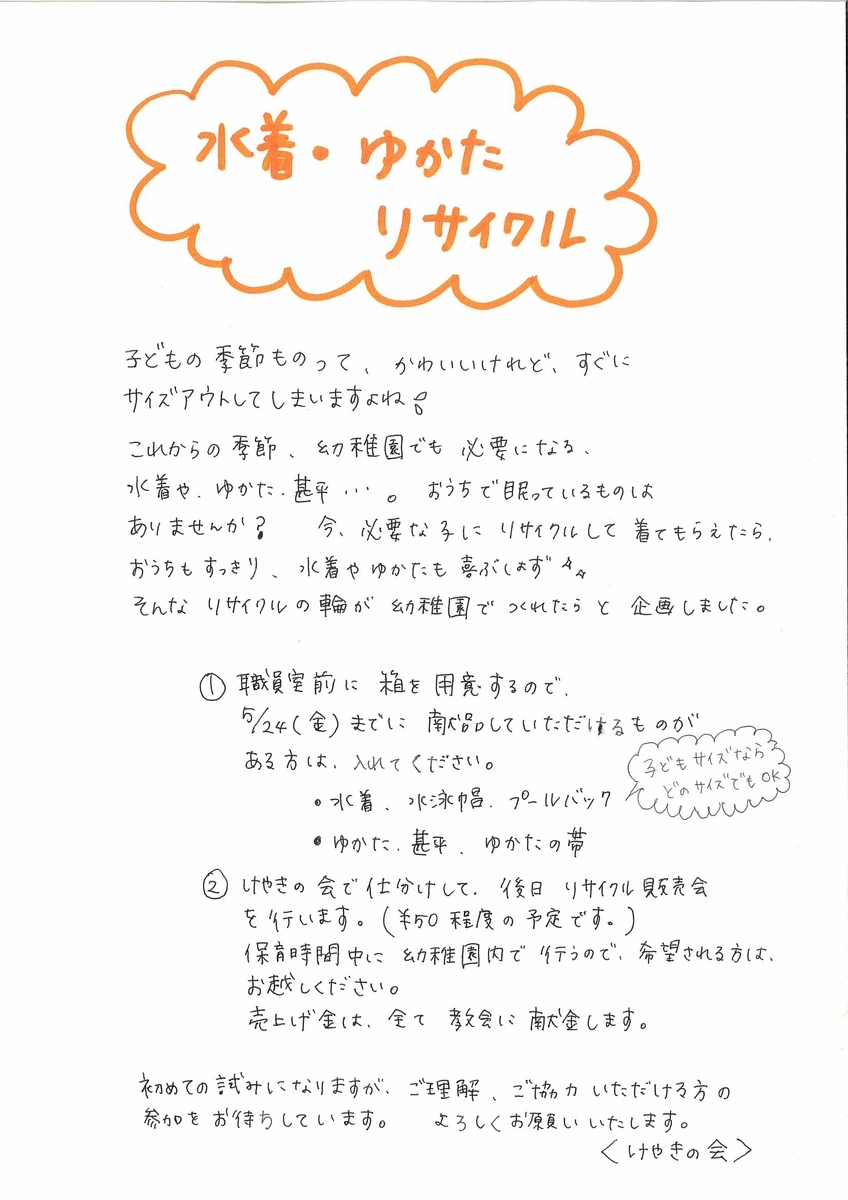 水着・ゆかた
リサイクル
子どもの季節ものって、かわいいけれど、すぐに
サイズアウトしてしまいますよね!
これからの季節、幼稚園でも必要になる、
水着や、ゆかた、甚平…。おうちで眠っているものは
ありませんか? 今、必要な子にリサイクルして着てもらえたら、
おうちもすっきり、水着やゆかたも喜ぶはず☆☆
そんなリサイクルの輪が幼稚園でつくれたらと企画しました。
① 職員室前に箱を用意するので、
5/24(金)までに献品していただけるものが
ある方は、入れてください。
子どもサイズなら
どのサイズでもOK
・水着、水泳帽、プールバック
・ゆかた、甚平、ゆかたの帯
② けやきの会で仕分けして、後日リサイクル販売会
を行います。(¥50程度の予定です。)
保育時間中に幼稚園内で行うので、希望される方は、
お越しください。
売上げ金は、全て教会に献金します。
初めての試みになりますが、ご理解、ご協力いただける方の
参加をお待ちしています。 よろしくお願いいたします。
<けやきの会>